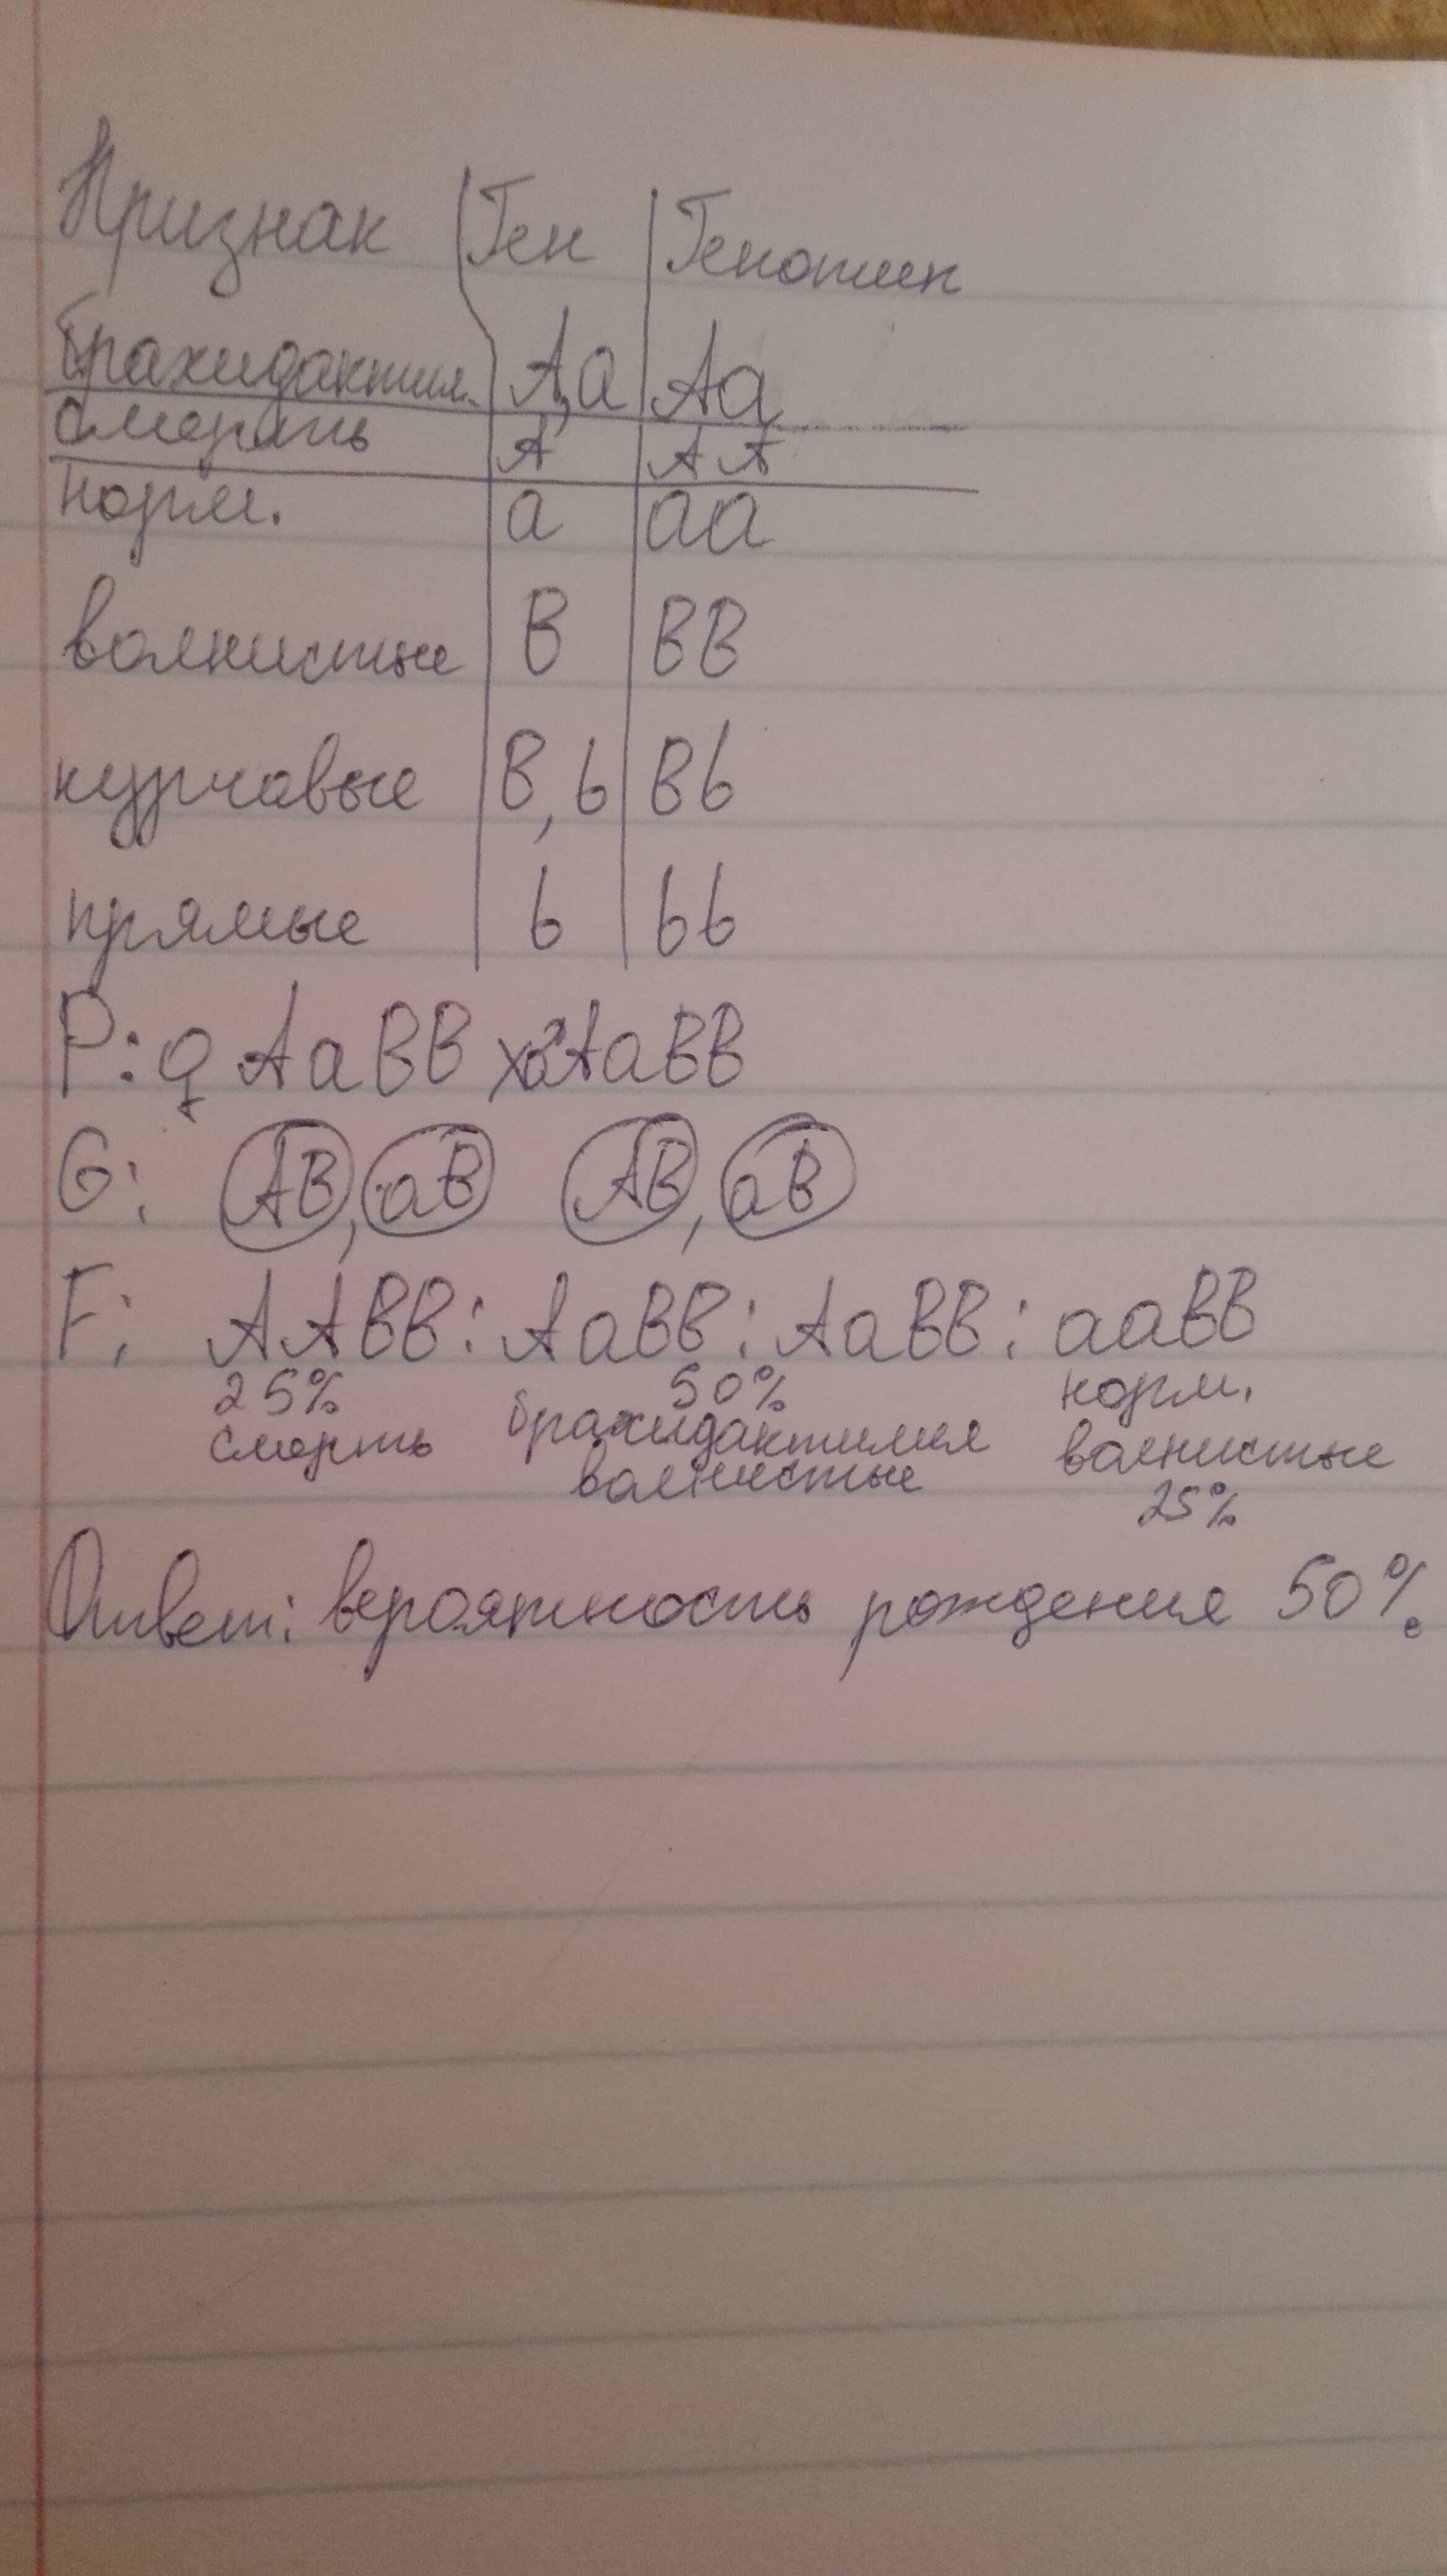 Признак Ген Генотип
брахидактил. А,а Аа
смерть А АА
норм. а аа
волнистые В ВВ
курчавые В, b Вb
прямые b bb
P: ♀ АаВВ х ♂ АаВВ
G: АВ, аВ АВ, аВ
F: ААВВ : АаВВ : АаВВ : ааВВ
25% 50% норм.
смерть брахидактилия волнистые
волнистые 25%
Ответ: вероятность рождения 50%.